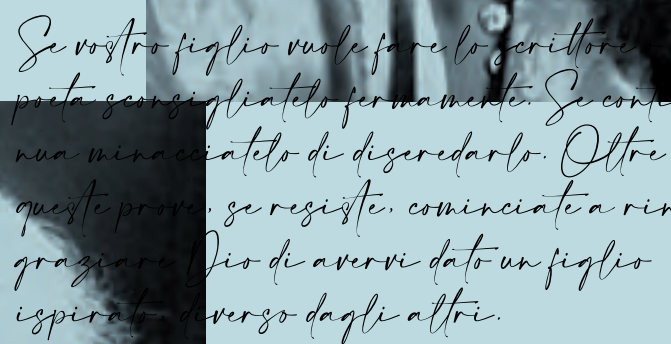 Se vostro figlio vuole fare lo scrittore
poeta sconsigliatelo fermamente. Se conti
nua minacciatelo di diseredarlo. Oltre
queste prove, se resiste, cominciate a rin
graziare Dio di avervi dato un figlio
ispirato, diverso dagli altri.